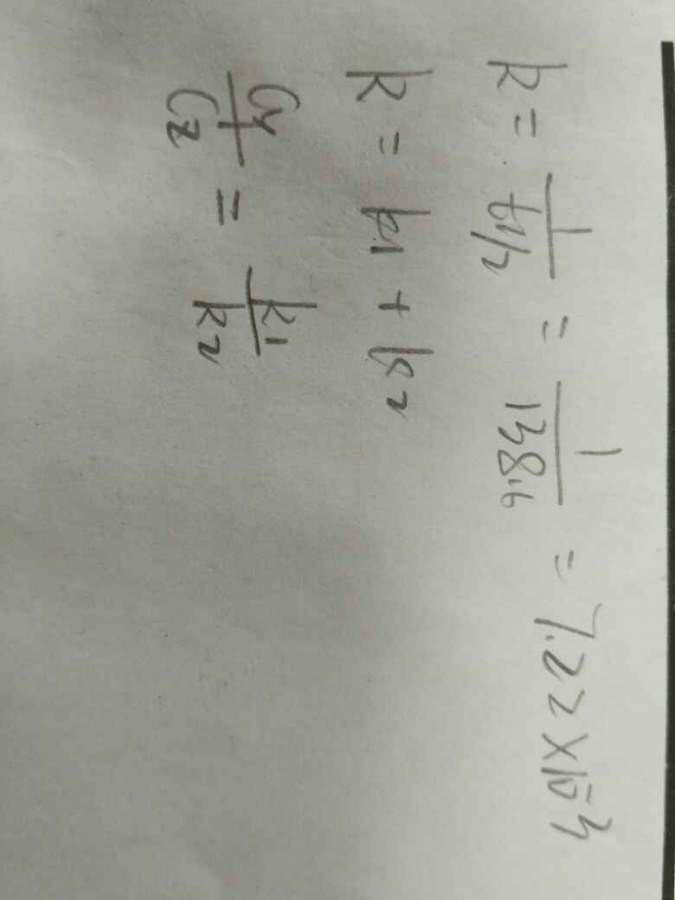 k = 1/t1/2 = 1/138.6 = 7.22×10-3
k = k1 + k2
Cy/Cz = k1/k2